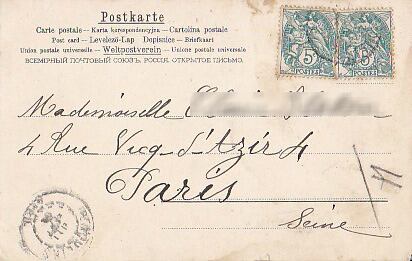 Postkarte
Carte postale — Karta korespondencyjna — Cartolina postale
Post card — Levelező-Lap Dopisnice — Briefkaart
Union postale universelle — Weltpostverein — Unione postale universale
ВСЕМІРНЫЙ ПОЧТОВЫЙ СОЮЗЪ. РОССІЯ. ОТКРЫТОЕ ПИСЬМО.
5 5
POSTES
Mademoiselle
4 Rue Vicq-d'Azir 4
Paris
Seine